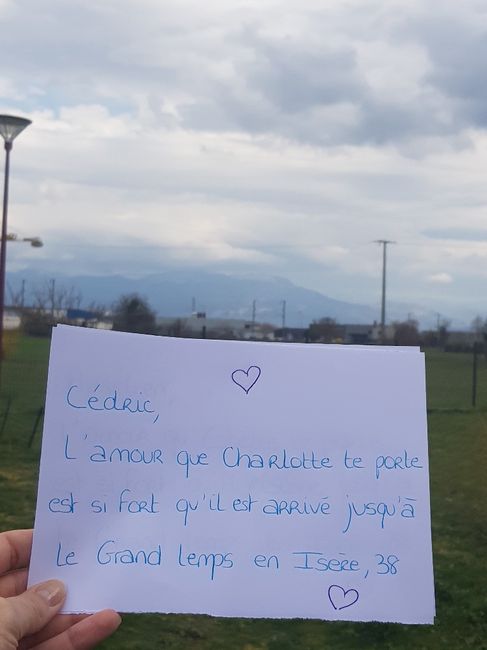 Cédric,
L'amour que Charlotte te porte
est si fort qu'il est arrivé jusqu'à
le Grand Lemps en Isère, 38